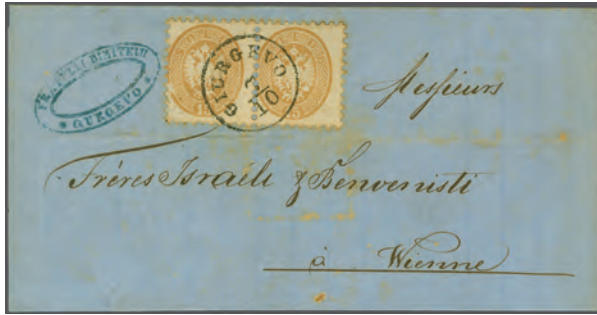 FRATELLI DIMITRIU
* GURGEVO *
GIURGEVO
10
Messieurs
Fréres Israeli & Benvenisti
à Vienne